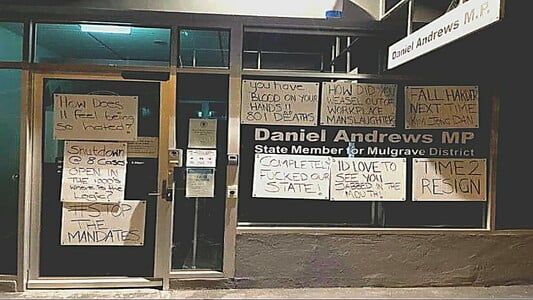 Daniel Andrews M.P.
How Does
It feel being
so hated?
Shutdown
@ 8 Case
OPEN
IN THE
Where is the
Logic?
#STOP
THE
MANDATES
you have
BLOOD ON YOUR
HANDS!!
801 DEATHS
HOW DID YOU
WEASEL OUT OF
WORKPLACE
MANSLAUGHTER
FALL HARDER
NEXT TIME
KIM JONG DAN
Daniel Andrews MP
State Member for Mulgrave District
COMPLETELY
FUCKED OUR
STATE!
ID LOVE TO
SEE YOU
JABBED IN THE
MOUTH!
TIME 2
RESIGN